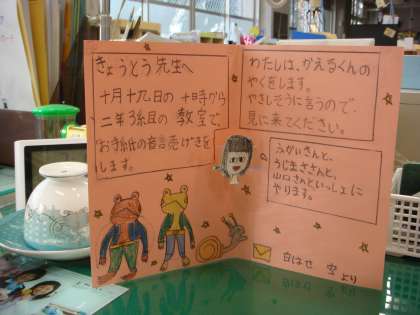 きょうとう先生へ
十月十九日の十時から
二年3組の教室で、
お手紙の音読げきを
します。
わたしは、かえるくんの
やくをします。
やさしそうに言うので
見に来てください。
うかいさんと、
うじまささんと、
山口さんといっしょに
やります。
白はせ 空より